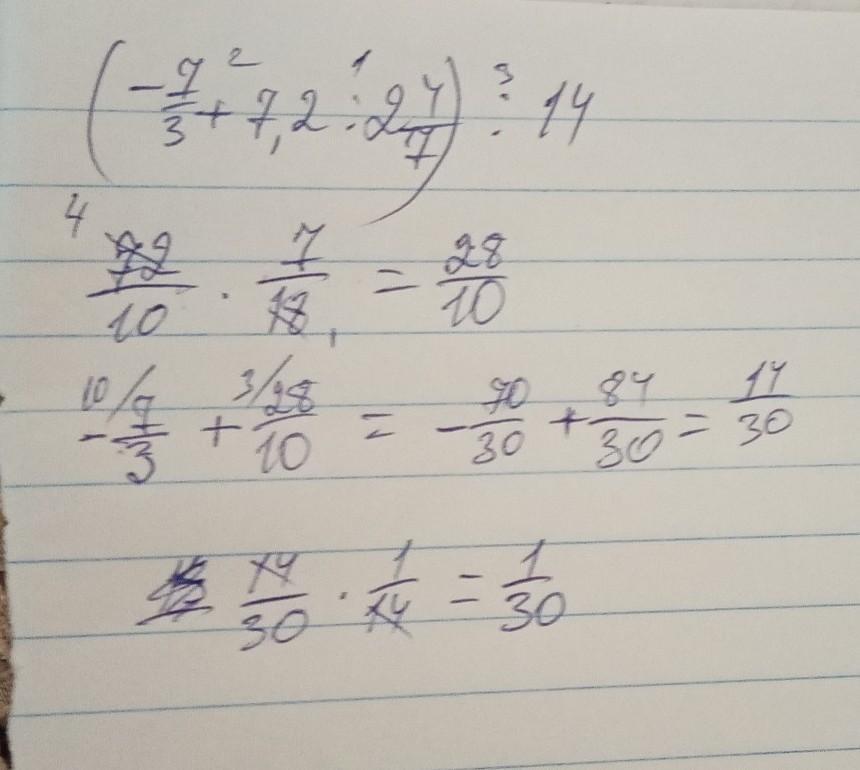 (-7/3 +² 7,2 :¹ 2 4/7) :³ 14
4 72/10 · 7/18 1 = 28/10
10/ -7/3 + 3/ 28/10 = -70/30 + 84/30 = 14/30
14/30 · 1/14 = 1/30